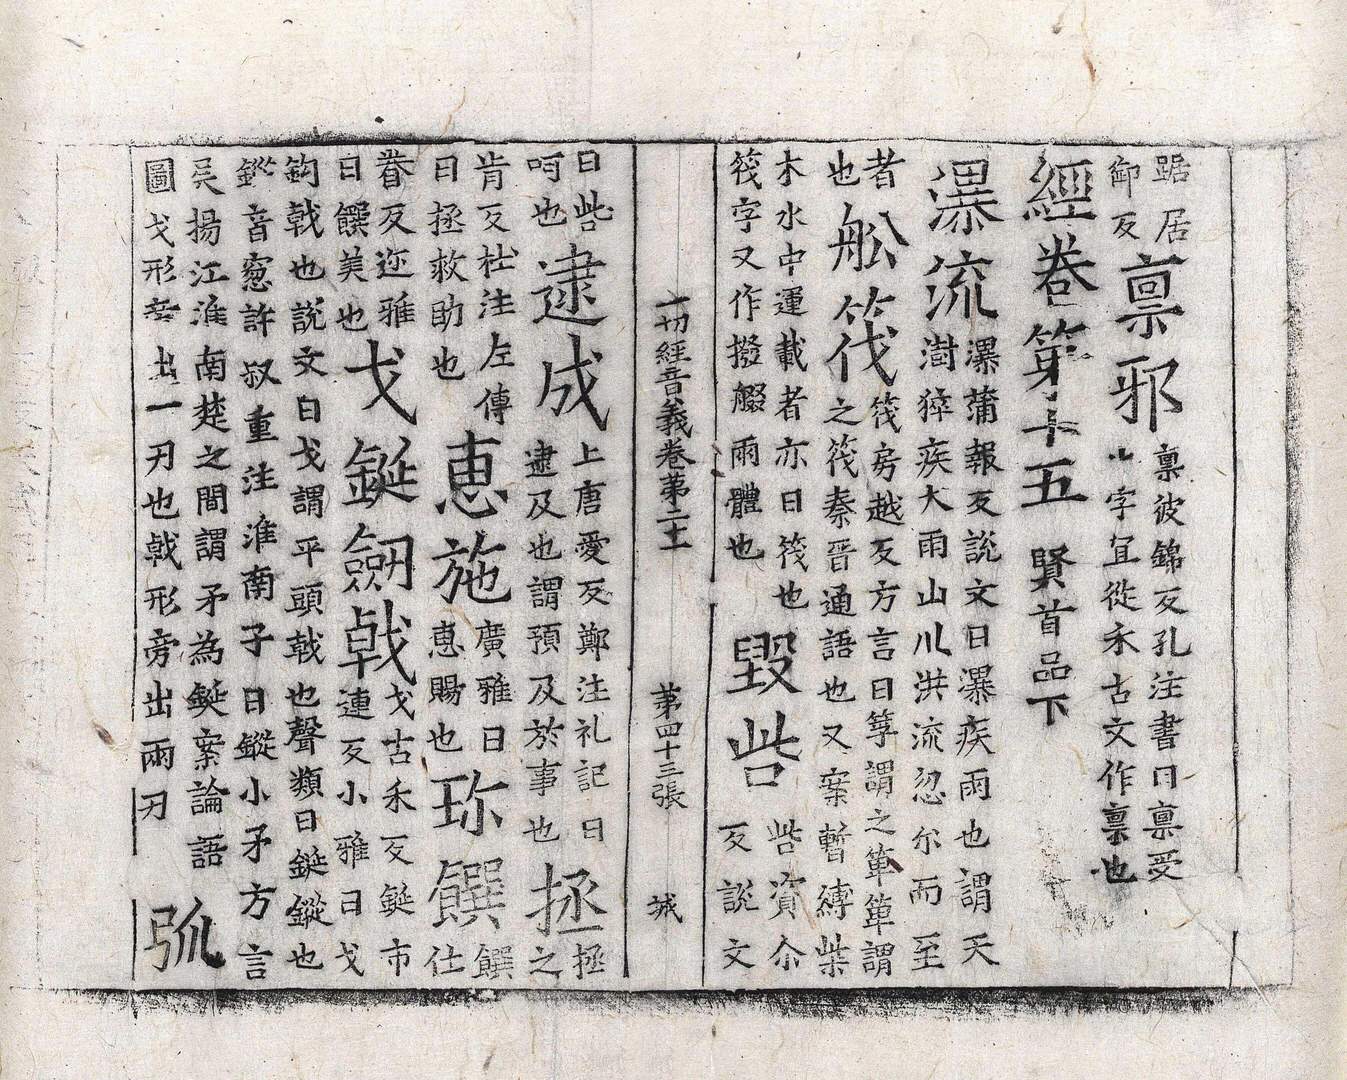 踞居
御反
稟邪
稟彼錦反孔注書曰稟受
也字宜從禾古文作稟也
經卷第十五 賢首品下
瀑流
瀑蒲報反說文曰瀑疾雨也謂天
澍猝疾大雨山川洪流忽尔而至
者
也
舩筏
筏房越反方言曰箄謂之箄箄謂
之筏秦晉通語也又案暫縛柴
木水中運載者亦曰筏也
筏字又作撥艘雨體也
毀呰
呰資尒
反說文
一切經音義卷第二十一 第四十三張 城
曰呰
呵也
逮成
上唐愛反鄭注礼記曰
逮及也謂預及於事也
拯
拯
之
肯反杜注左傳
曰拯救助也
恵施
廣雅曰
恵賜也
珎饌
饌
仕
眷反迩雅
曰饌美也
戈鋋劒戟
戈古禾反鋋市
連反小雅曰戈
鉤戟也說文曰戈謂平頭戟也聲類曰鋋鏦也
鏦音窓許叔重注淮南子曰鏦小矛方言
吴揚江淮南楚之間謂矛為鋋案論語
圖戈形旁出一刃也戟形旁出兩刃
弧